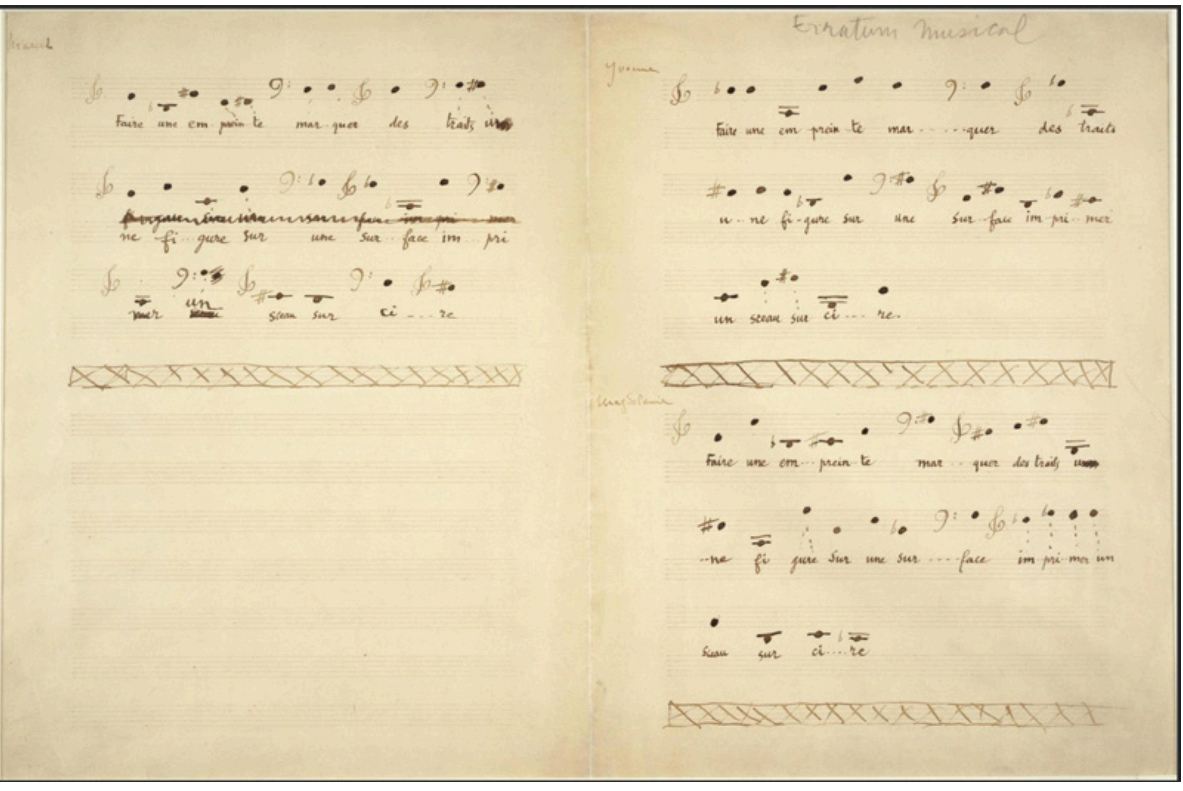 Erratum Musical
Marcel
Faire une em prein te mar quer des traits
ne fi...gure sur une sur...face im...pri
mer un sceau sur ci....re
Yvonne
Faire une em prein te mar......quer des traits
u...ne fi-gure sur une sur...face im-pri...mer
un sceau sur ci....re.
Magdeleine
Faire une em...prein te mar...quer des traits
...ne fi gure sur une sur....face im pri mer un
sceau sur ci....re